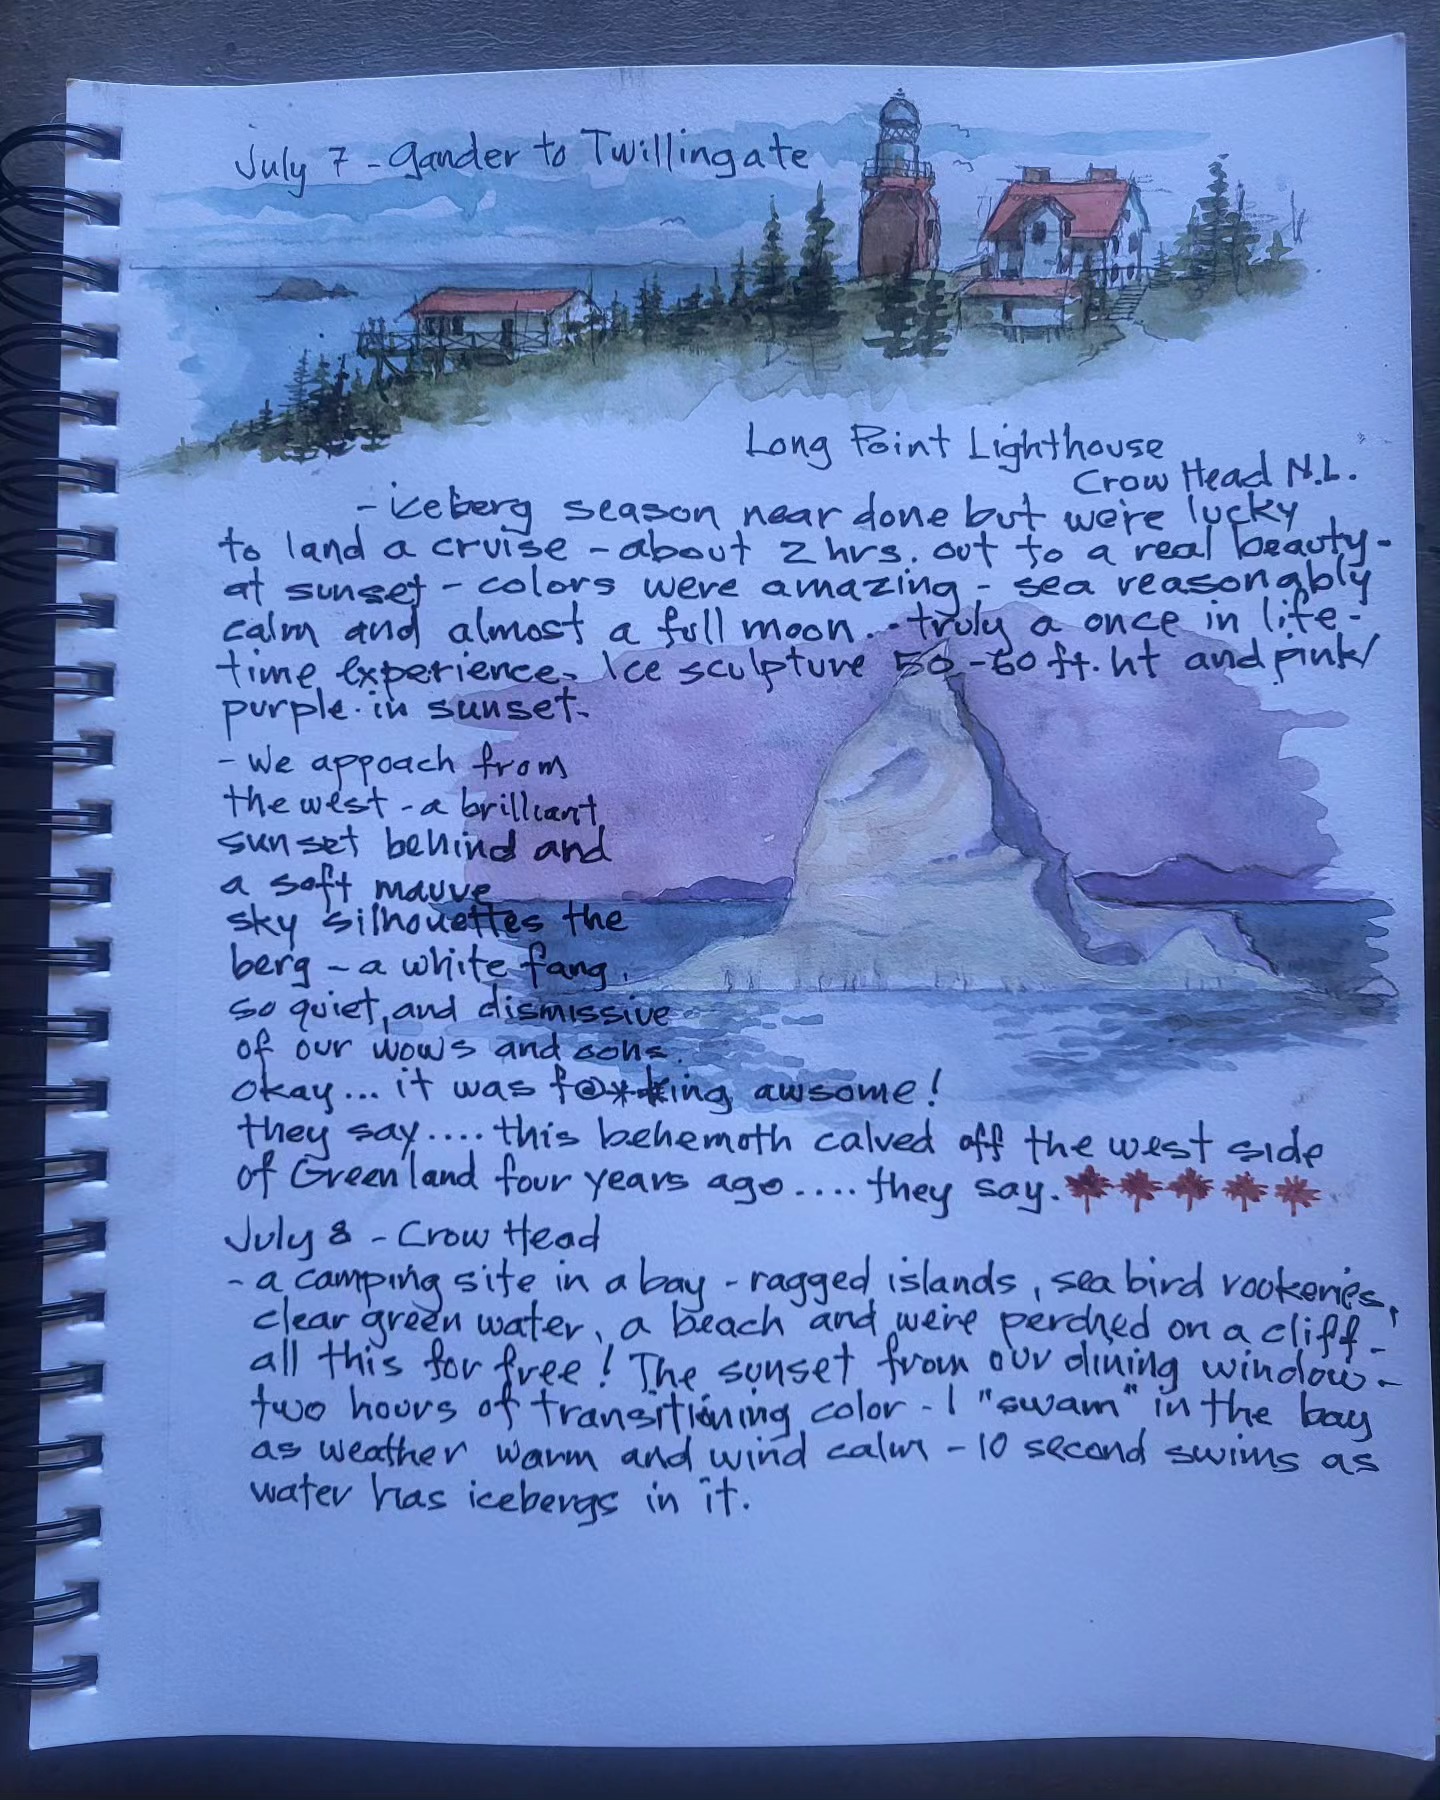 July 7 - Gander to Twillingate
Long Point Lighthouse
Crow Head N.L.
- iceberg season near done but we're lucky
to land a cruise - about 2 hrs. out to a real beauty -
at sunset - colors were amazing - sea reasonably
calm and almost a full moon... truly a once in life-
time experience. Ice sculpture 50-60 ft. ht and pink/
purple in sunset.
- We appoach from
the west - a brilliant
sunset behind and
a soft mauve
sky silhouettes the
berg - a white fang.
so quiet, and dismissive
of our wows and oohs.
okay... it was f@**king awsome!
they say.... this behemoth calved off the west side
of Greenland four years ago.... they say.
July 8 - Crow Head
- a camping site in a bay - ragged islands, sea bird rookeries,
clear green water, a beach and we're perched on a cliff -
all this for free! The sunset from our dining window -
two hours of transitioning color - I "swam" in the bay
as weather warm and wind calm - 10 second swims as
water has icebergs in it.